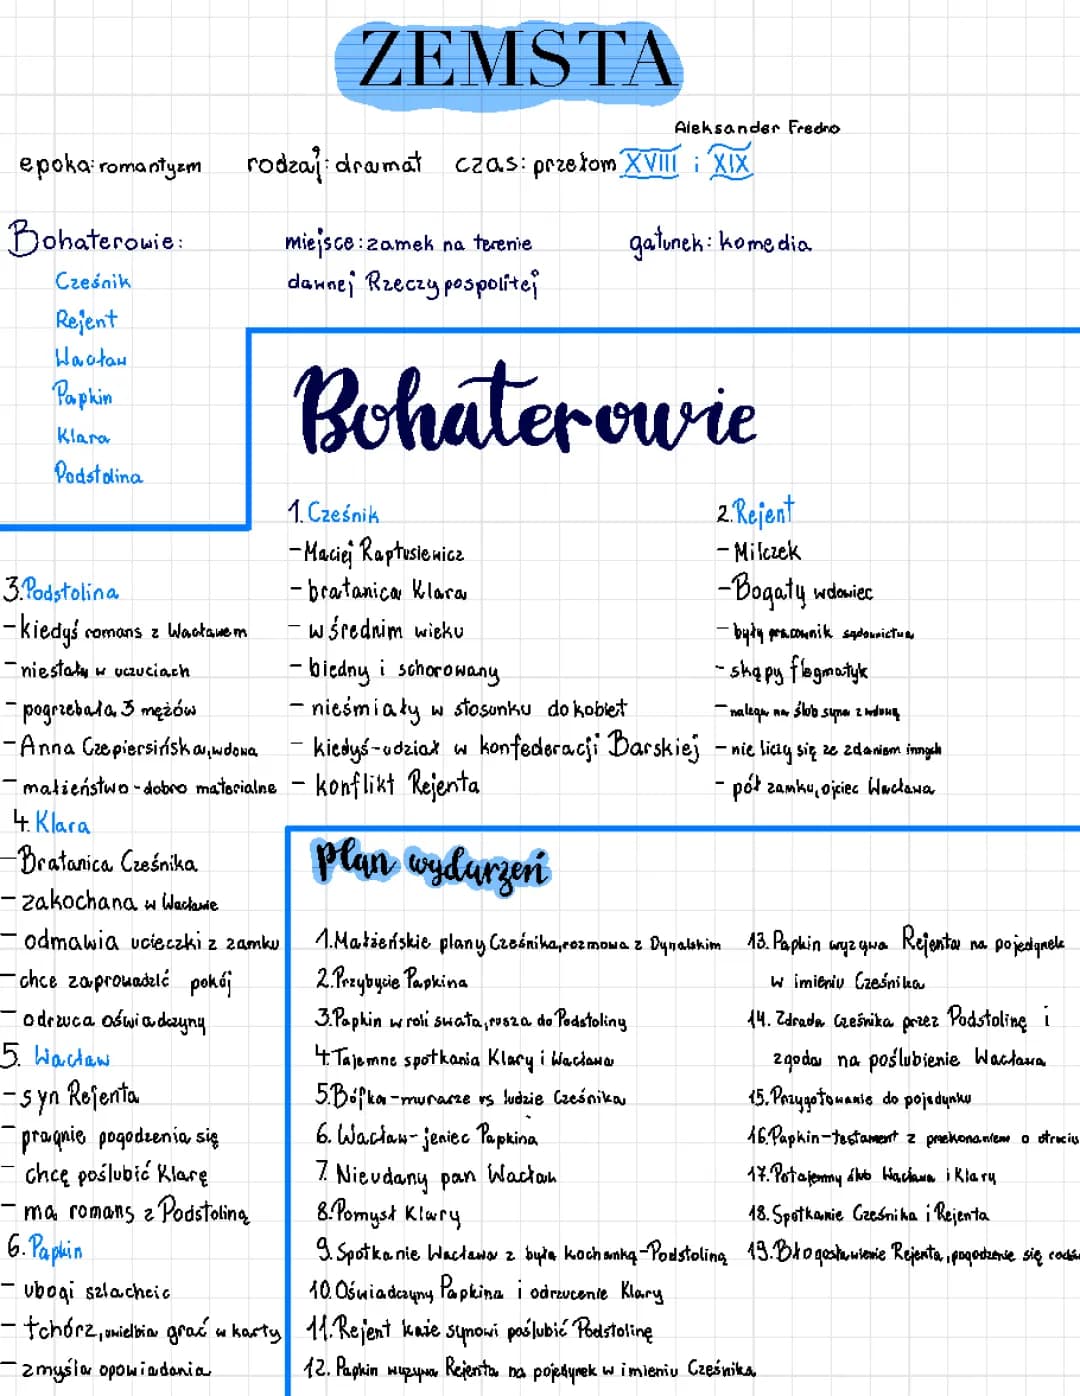 ZEMSTA
Aleksander Fredro
epoka: romantyzm rodzaj: dramat czas: przełom XVIII i XIX
Bohaterowie:
Cześnik
Rejent
Wacław
Papkin
Klara
Podstolina
miejsce: zamek na terenie
dawnej Rzeczypospolitej
gatunek: komedia
Bohaterowie
1. Cześnik
- Maciej Raptusiewicz
- bratanica Klara
- w średnim wieku
- biedny i schorowany
- nieśmiały w stosunku do kobiet
- kiedyś - udział w konfederacji Barskiej
- konflikt Rejenta
2. Rejent
- Milczek
- Bogaty wdowiec
- były pracownik sądownictwa
- skąpy flegmatyk
- nalega na ślub syna z wdową
- nie liczy się ze zdaniem innych
- pół zamku, ojciec Wacława
3. Podstolina
- kiedyś romans z Wacławem
- niestały w uczuciach
- pogrzebała 3 mężów
- Anna Czepiersińska, wdowa
- małżeństwo - dobro materialne
4. Klara
- Bratanica Cześnika
- zakochana w Wacławie
- odmawia ucieczki z zamku
- chce zaprowadzić pokój
- odrzuca oświadczyny
5. Wacław
- syn Rejenta
- pragnie pogodzenia się
- chcę poślubić Klarę
- ma romans z Podstoliną
6. Papkin
- ubogi szlachcic
- tchórz, uwielbia grać w karty
- zmyśla opowiadania
plan wydarzeń
1. Małżeńskie plany Cześnika, rozmowa z Dynalskim
2. Przybycie Papkina
3. Papkin w roli swata, rusza do Podstoliny
4. Tajemne spotkania Klary i Wacława
5. Bójka - murarze vs ludzie Cześnika
6. Wacław - jeniec Papkina
7. Nieudany pan Wacław
8. Pomysł Klary
9. Spotkanie Wacława z byłą kochanką - Podstoliną
10. Oświadczyny Papkina i odrzucenie Klary
11. Rejent każe synowi poślubić Podstolinę
12. Papkin wyzywa Rejenta na pojedynek w imieniu Cześnika
13. Papkin wyzywa Rejenta na pojedynek
w imieniu Cześnika
14. Zdrada Cześnika przez Podstolinę i
zgoda na poślubienie Wacława
15. Przygotowanie do pojedynku
16. Papkin - testament z przekonaniem o otruciu
17. Potajemny ślub Wacława i Klary
18. Spotkanie Cześnika i Rejenta
19. Błogosławienie Rejenta, pogodzenie się